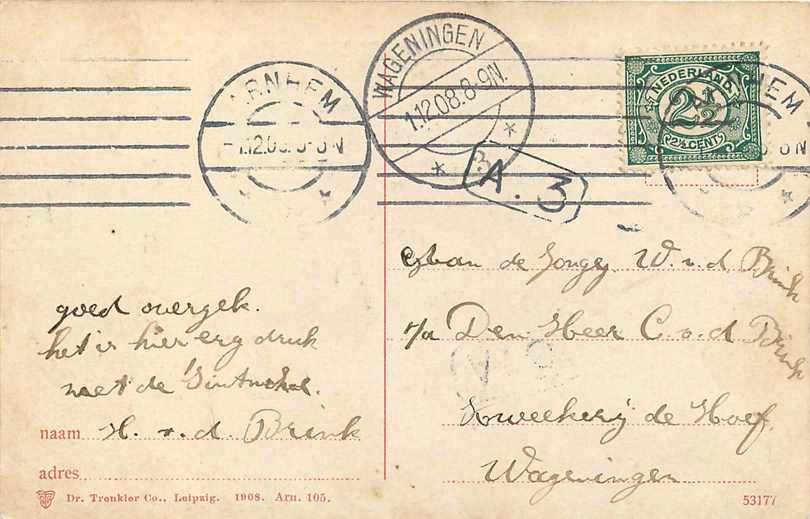 ARNHEM
1.12.08. 8-9N.
WAGENINGEN
1.12.08. 8-9N.
3
A. 3
NEDERLAND
2½
2½ CENT
goed overgek.
het is hier erg druk
met de
naam H. v. d. Brink
adres
Dr. Trenkler Co., Leipzig. 1908. Arn. 105.
de W. v. d Brink
p/a Den Heer C. v. d Brink
Kweekerij de Hoef.
Wageningen
53177